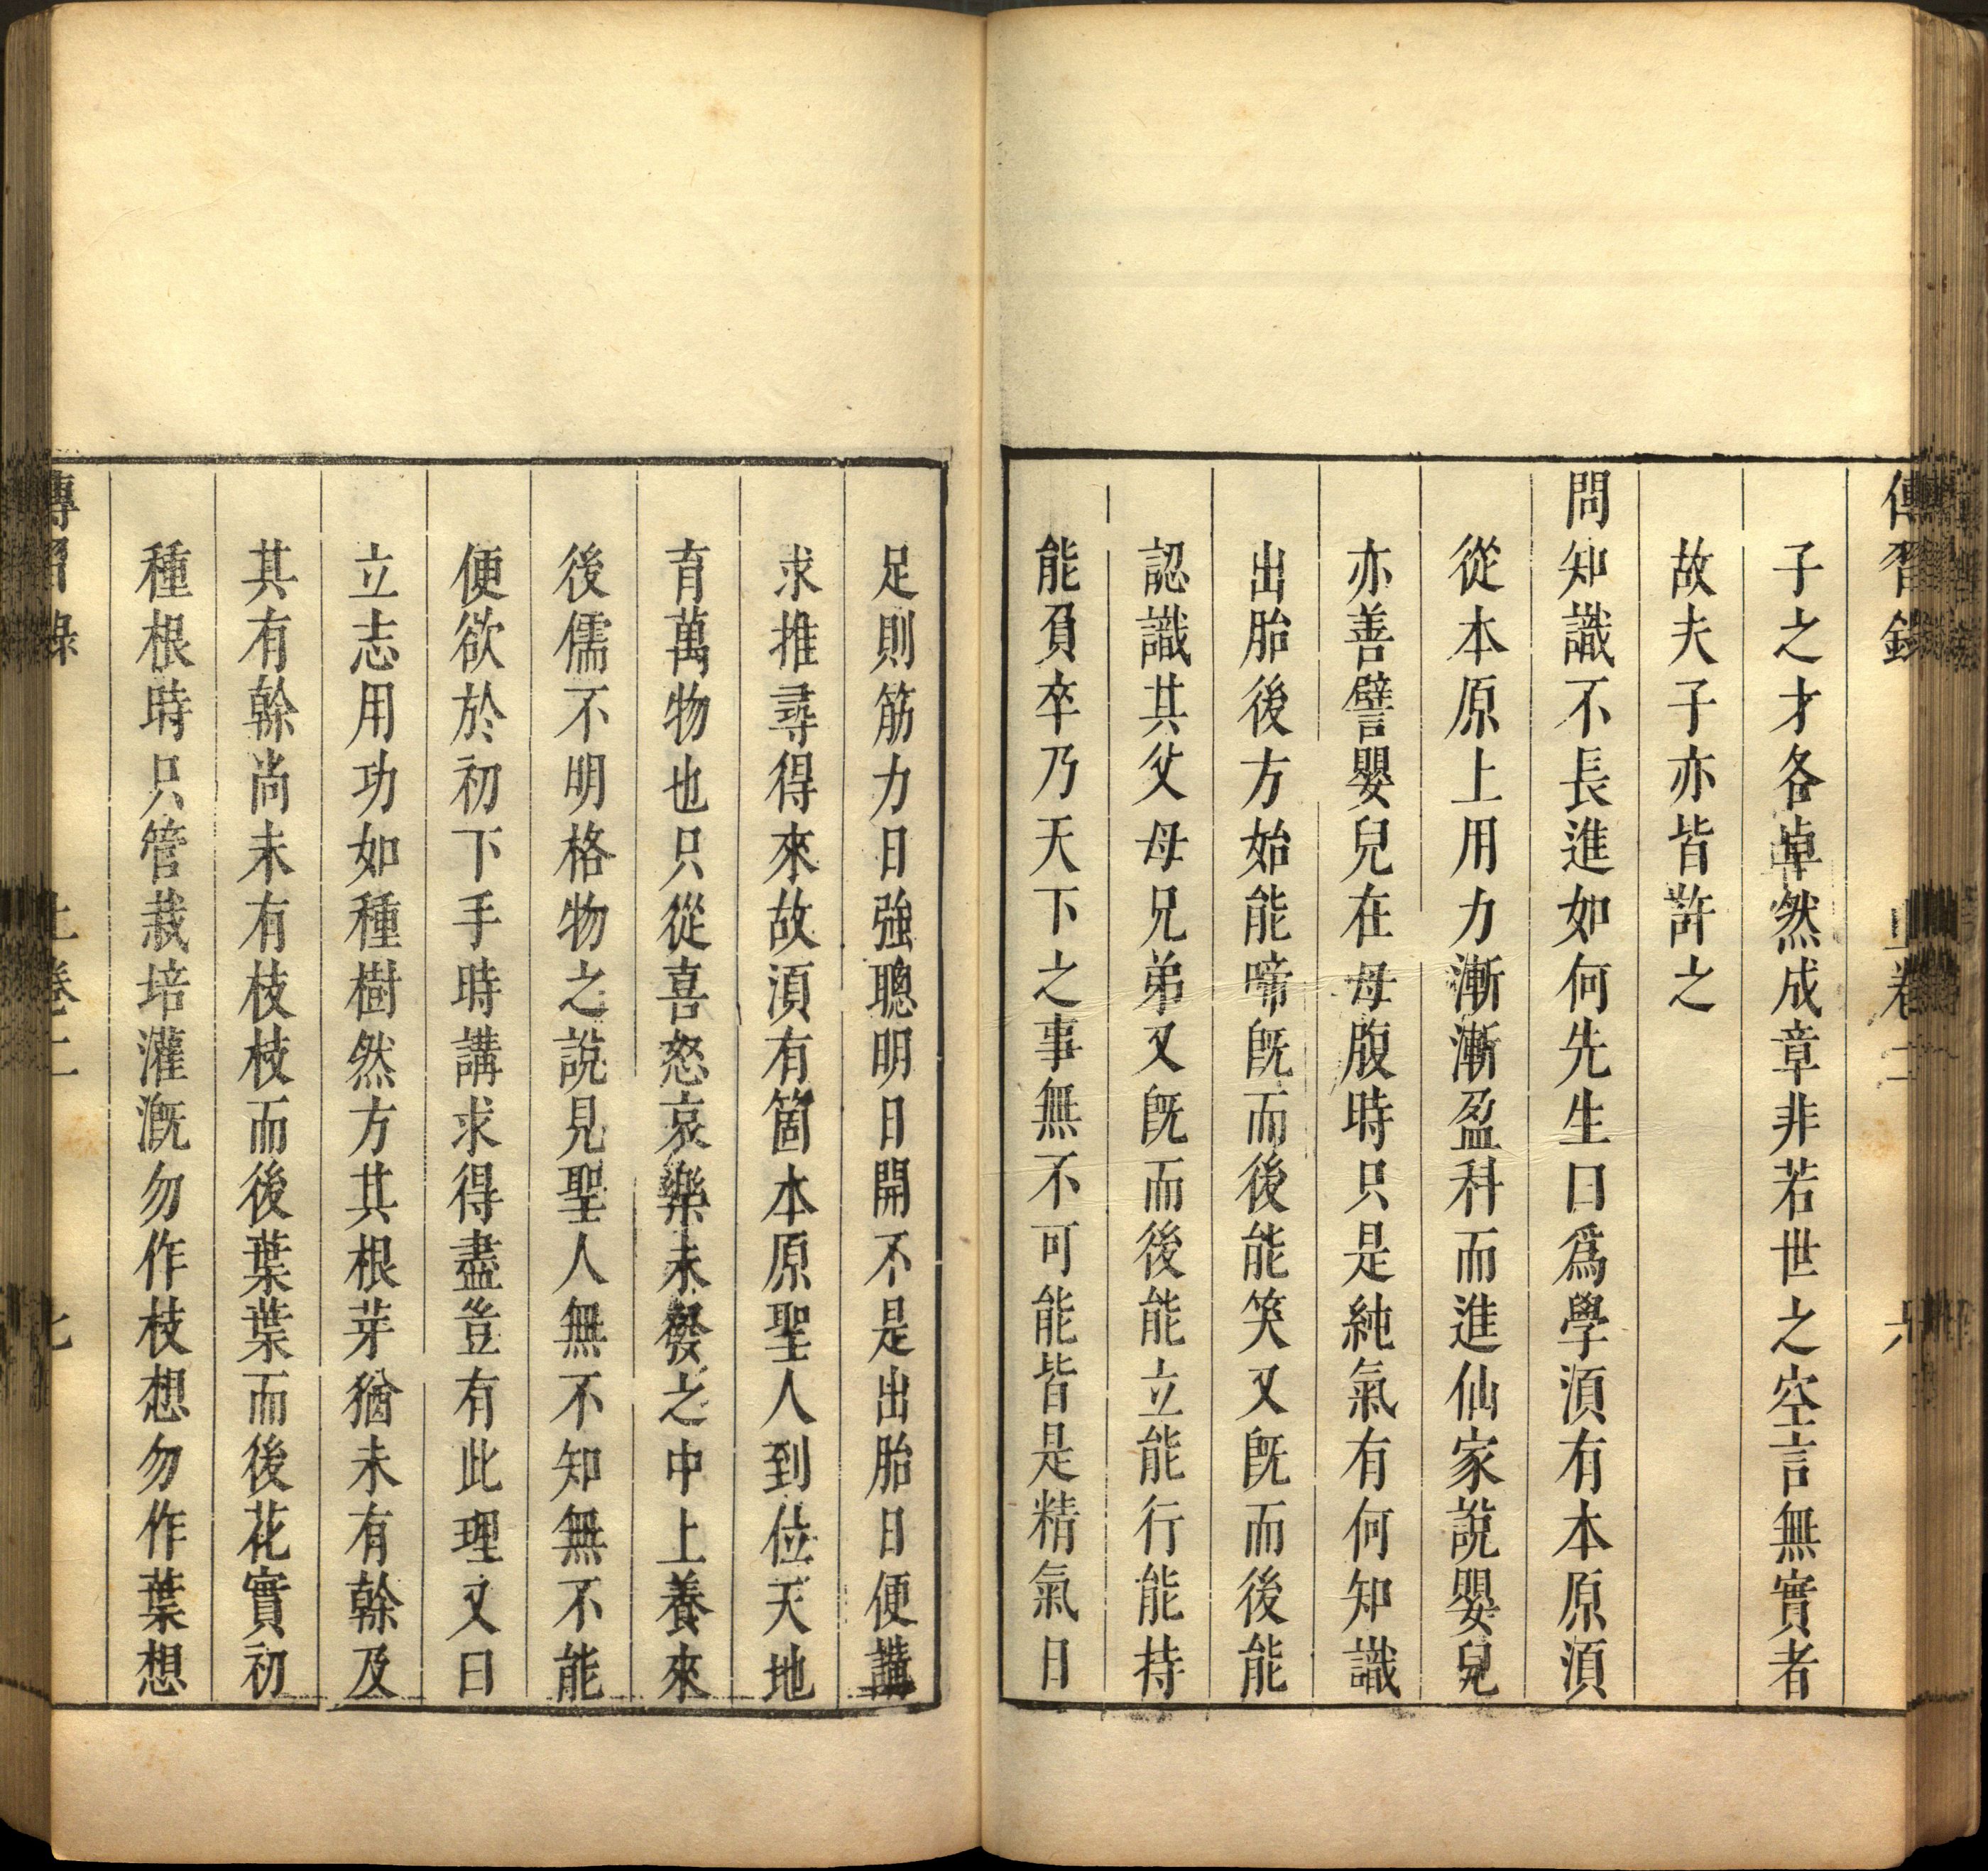 傳習錄 上卷二 六
子之才各卓然成章非若世之空言無實者
故夫子亦皆許之
問知識不長進如何先生曰爲學湏有本原湏
從本原上用力漸漸盈科而進仙家說嬰兒
亦善譬嬰兒在母腹時只是純氣有何知識
出胎後方始能啼旣而後能笑又旣而後能
認識其父母兄弟又旣而後能立能行能持
能負卒乃天下之事無不可能皆是精氣日
足則筋力日強聰明日開不是出胎日便講
求推尋得來故湏有箇本原聖人到位天地
育萬物也只從喜怒哀樂未發之中上養來
後儒不明格物之說見聖人無不知無不能
便欲於初下手時講求得盡豈有此理又曰
立志用功如種樹然方其根芽猶未有幹及
其有幹尚未有枝枝而後葉葉而後花實初
種根時只管栽培灌漑勿作枝想勿作葉想
傳習錄 上卷二 七